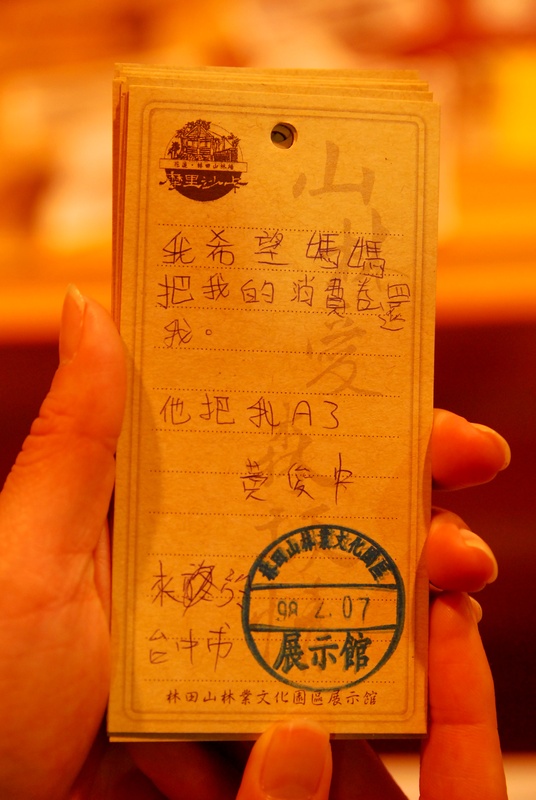 花蓮・林田山林場
摩里沙卡
山林
愛
我希望媽媽
把我的消費卷還
我。
他把我A了
黃俊中
來
台中市
林田山林業文化園區
98 2. 07
展示館
林田山林業文化園區展示館